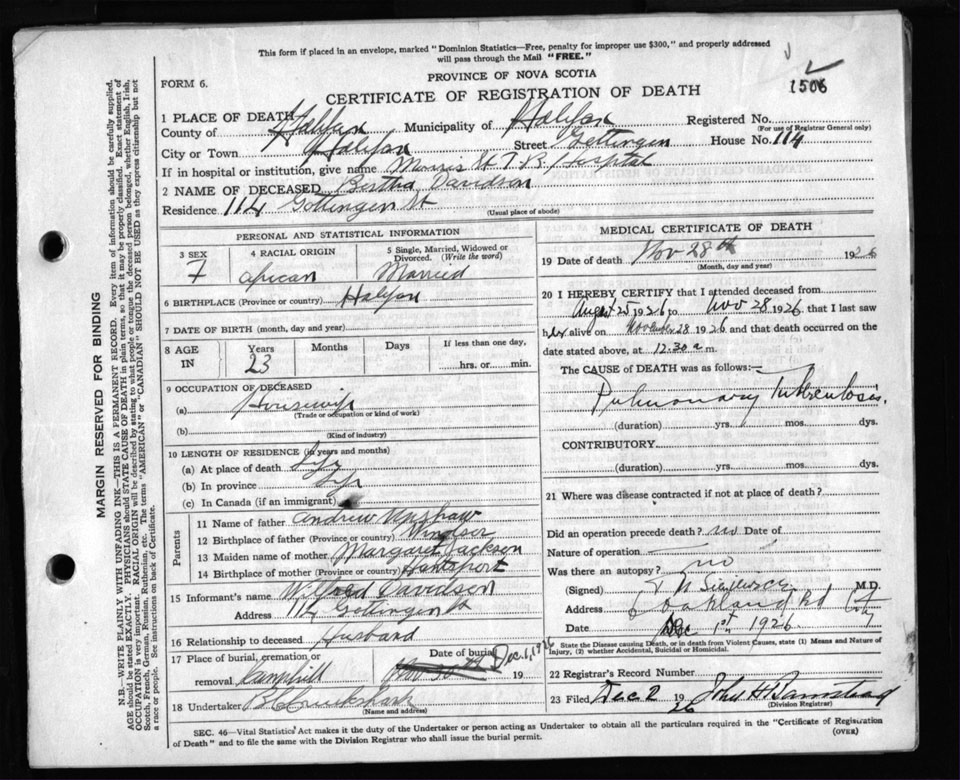 This form if placed in an envelope, marked "Dominion Statistics—Free, penalty for improper use $300," and properly addressed
will pass through the Mail "FREE."
1506
FORM 6.
PROVINCE OF NOVA SCOTIA
CERTIFICATE OF REGISTRATION OF DEATH
1 PLACE OF DEATH
Registered No.
(For use of Registrar General only)
County of Halifax Municipality of Halifax
City or Town Halifax Street Gottingen House No. 114
If in hospital or institution, give name Morris St T.B. Hospital
2 NAME OF DECEASED Bertha Davidson
Residence 114 Gottingen St
(Usual place of abode)
PERSONAL AND STATISTICAL INFORMATION
3 SEX 4 RACIAL ORIGIN 5 Single, Married, Widowed or Divorced. (Write the word)
F African Married
6 BIRTHPLACE (Province or country) Halifax
7 DATE OF BIRTH (month, day and year)
8 AGE IN Years Months Days If less than one day,
23 hrs. or min.
9 OCCUPATION OF DECEASED
(a) Housewife
(Trade or occupation or kind of work)
(b)
(Kind of industry)
10 LENGTH OF RESIDENCE (in years and months)
(a) At place of death Life
(b) In province Life
(c) In Canada (if an immigrant)
Parents
11 Name of father Andrew Upshaw
12 Birthplace of father (Province or country) Windsor
13 Maiden name of mother Margaret Jackson
14 Birthplace of mother (Province or country) Hantsport
15 Informant's name Davidson
Address 114 Gottingen St
16 Relationship to deceased Husband
17 Place of burial, cremation or removal Date of burial
Camphill Nov 30th Dec. 1, 1926 19
18 Undertaker
(Name and address)
MEDICAL CERTIFICATE OF DEATH
19 Date of death Nov 28th 1926
(Month, day and year)
20 I HEREBY CERTIFY that I attended deceased from
August 25 1926 to Nov 28 1926, that I last saw
her alive on November 28 1926 and that death occurred on the
date stated above, at 12.30 a m.
The CAUSE of DEATH was as follows:—
Pulmonary Tuberculosis.
(duration) yrs. mos. dys.
CONTRIBUTORY
(duration) yrs. mos. dys.
21 Where was disease contracted if not at place of death?
Did an operation precede death? no Date of
Nature of operation
Was there an autopsy? no
(Signed) M.D.
Address Oakland Rd
Date Dec 1st 1926
State the Disease causing Death, or in death from Violent Causes, state (1) Means and Nature of
Injury, (2) whether Accidental, Suicidal or Homicidal.
22 Registrar's Record Number
23 Filed Dec 2 1926 John H Barnstead
(Division Registrar)
SEC. 46—Vital Statistics Act makes it the duty of the Undertaker or person acting as Undertaker to obtain all the particulars required in the "Certificate of Registration
of Death" and to file the same with the Division Registrar who shall issue the burial permit.
(OVER)
MARGIN RESERVED FOR BINDING
N.B.—WRITE PLAINLY WITH UNFADING INK—THIS IS A PERMANENT RECORD. Every item of information should be carefully supplied.
AGE should be stated EXACTLY. PHYSICIANS should STATE CAUSE OF DEATH in plain terms, so that it may be properly classified. Exact statement of
OCCUPATION is very important. RACIAL ORIGIN will be described by stating to what people or tongue the deceased person belonged, whether English, Irish,
Scotch, French, German, Russian, Ruthenian, etc. The terms "AMERICAN" or "CANADIAN" SHOULD NOT BE USED as they express citizenship but not
a race or people. See instructions on back of Certificate.